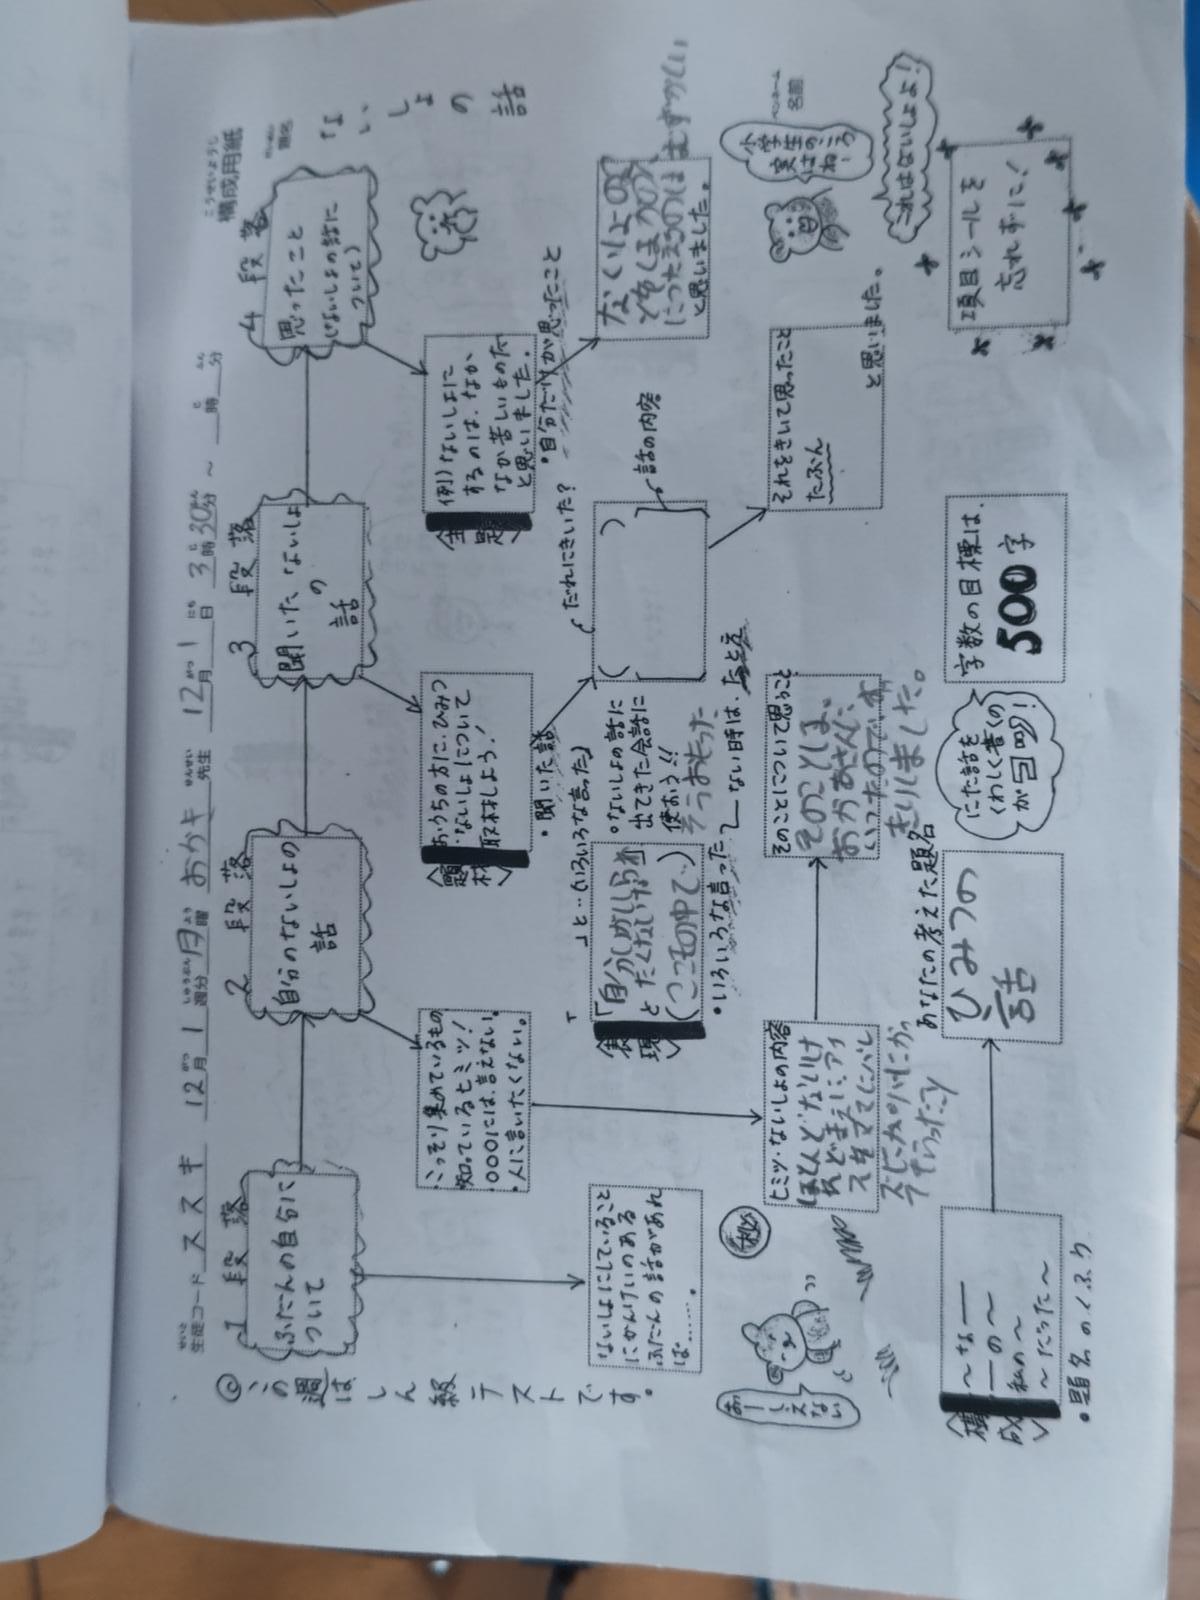 こうせいようし
構成用紙
だいめい
題名
ないしょの話
ペンネーム
名前
せいと
生徒コード ススキ 12月 1 週分 月曜 おかキ 先生 12月 1日 3時30分〜 時 分
1段落
ふだんの自分に
ついて
2段落
自分のないしょの
話
3段落
聞いたないしょ
の
話
4段落
思ったこと
(ないしょの話に
ついて)
この週はしん級テストです。
・こっそり集めているもの
・知っているヒミツ!
・〇〇〇には、言えない。
・人に言いたくない。
〈題材〉
おうちの方に、ひみつ
・ないしょについて
取材しよう!
〈主題〉
例)ないしょに
するのは、なか
なか苦しいものだ
と思いました。
・聞いた話
・自分だけが思ったこと
ないしょにしていること
にかんけいのある
ふだんの話があれ
ば……。
「 」と‥(いろいろな言った)
〈表現〉
(ここもの中で)
・いろいろな言った
・ないしょの話に
出てきた会話に
使おう!!
そうおもった
ない時は、たとえ
だれにきいた?
話の内容
と思いました。
あー
しえない
秘
ヒミツ・ないしょの内容
そのことについて思うこと
そのことは、
おかあさんに、
いったのです
きりしました。
それをきいて思ったこと
たぶん
と思いました。
小学生のころ
実はね…
これはないしょよ!
〈構成〉
〜な――
――の〜
私の〜
〜だった〜
・題名のくふう
あなたの考えた題名
ひみつの
話
にた話を
くわしく書くの
が◯!
字数の目標は、
500字
項目シールを
忘れずに!